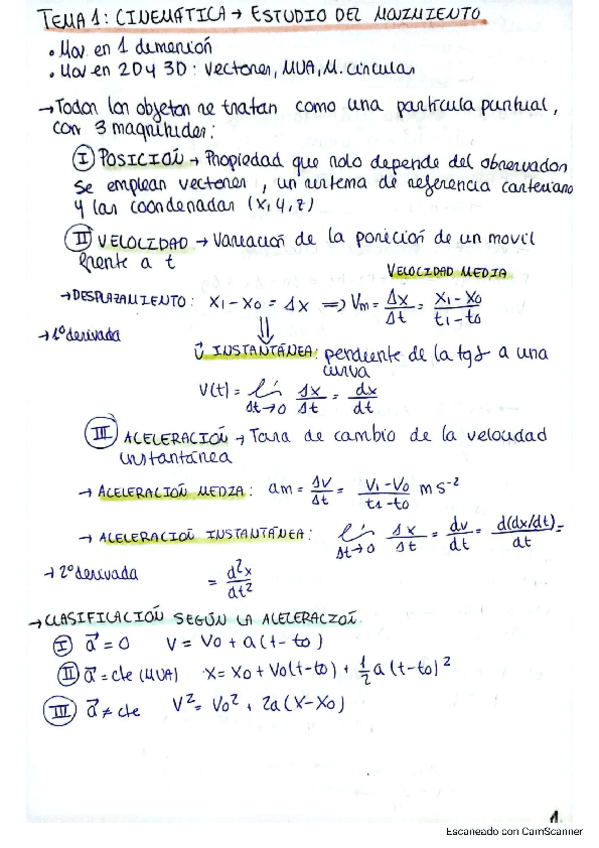 TEMA 1: CINEMÁTICA → ESTUDIO DEL MOVIMIENTO
• Mov. en 1 dimensión
• Mov en 2D y 3D: Vectores, MUA, M. circular
→ Todos los objetos se tratan como una partícula puntual,
con 3 magnitudes:
I POSICIÓN → Propiedad que solo depende del observador
Se emplean vectores, un sistema de referencia cartesiano
y las coordenadas (x, y, z)
II VELOCIDAD → Variación de la posición de un movil
frente a t
VELOCIDAD MEDIA
→ DESPLAZAMIENTO: x1 - x0 = Δx ⇒ Vm = Δx/Δt = (x1 - x0)/(t1 - t0)
→ 1º derivada
v⃗ INSTANTÁNEA: pendiente de la tg a una
curva
V(t) = lím Δt→0 Δx/Δt = dx/dt
III ACELERACIÓN → Tasa de cambio de la velocidad
instantánea
→ ACELERACIÓN MEDIA: am = ΔV/Δt = (V1 - V0)/(t1 - t0) m s⁻²
→ ACELERACIÓN INSTANTÁNEA: lím Δt→0 Δx/Δt = dv/dt = d(dx/dt)/dt =
→ 2º derivada = d²x/dt²
→ CLASIFICACIÓN SEGÚN LA ACELERACIÓN.
I a⃗ = 0 V = V0 + a(t - t0)
II a⃗ = cte (MUA) X = X0 + V0(t - t0) + 1/2 a (t - t0)²
III a⃗ ≠ cte V² = V0² + 2a(X - X0)
1.
Escaneado con CamScanner